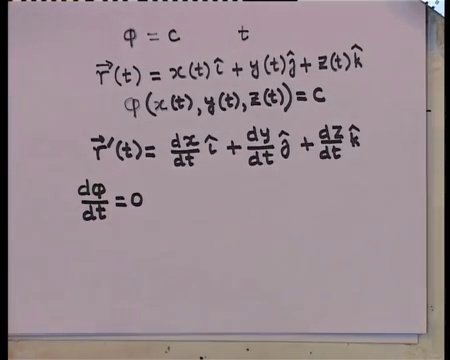 φ = c t
r⃗(t) = x(t) î + y(t) ĵ + z(t) k̂
φ(x(t), y(t), z(t)) = c
r⃗′(t) = dx/dt î + dy/dt ĵ + dz/dt k̂
dφ/dt = 0